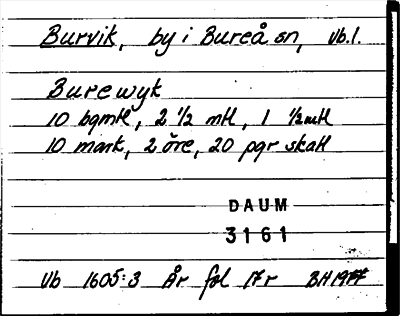 Burvik, by i Bureå sn, Vb.l.
Burewyk
10 bgmtl, 2 1/2 mtl, 1 1/2mtl
10 mark, 2 öre, 20 pgr skatt
DAUM
3161
Vb 1605:3 År fol 17r BH1977